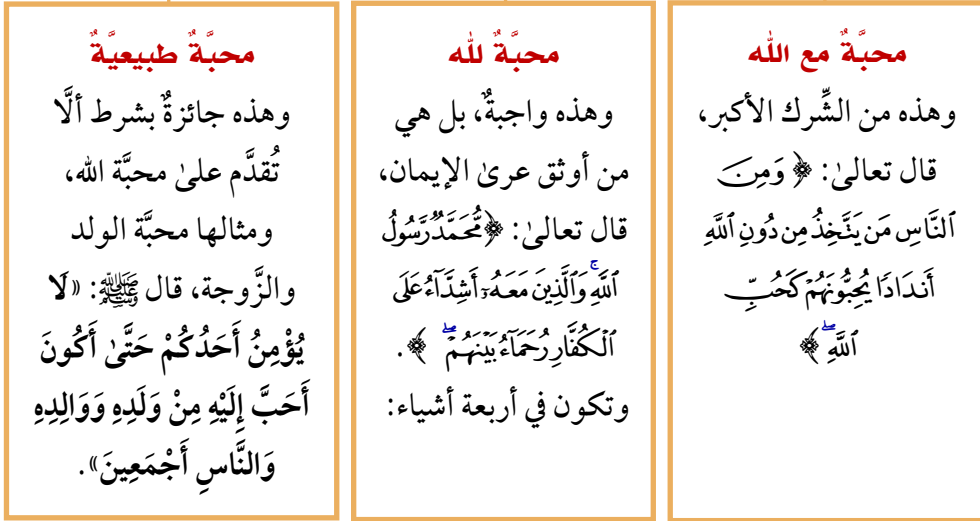 محبَّةٌ مع الله
وهذه من الشِّرك الأكبر،
قال تعالىٰ: ﴿وَمِنَ
ٱلنَّاسِ مَن يَتَّخِذُ مِن دُونِ ٱللَّهِ
أَندَادًا يُحِبُّونَهُمْ كَحُبِّ
ٱللَّهِۖ﴾
محبَّةٌ لله
وهذه واجبةٌ، بل هي
من أوثق عرىٰ الإيمان،
قال تعالىٰ: ﴿مُّحَمَّدٌ رَّسُولُ
ٱللَّهِۚ وَٱلَّذِينَ مَعَهُۥٓ أَشِدَّآءُ عَلَى
ٱلْكُفَّارِ رُحَمَآءُ بَيْنَهُمْۖ﴾.
وتكون في أربعة أشياء:
محبَّةٌ طبيعيَّةٌ
وهذه جائزةٌ بشرط ألَّا
تُقدَّم علىٰ محبَّة الله،
ومثالها محبَّة الولد
والزَّوجة، قال ﷺ: «لَا
يُؤْمِنُ أَحَدُكُمْ حَتَّىٰ أَكُونَ
أَحَبَّ إِلَيْهِ مِنْ وَلَدِهِ وَوَالِدِهِ
وَالنَّاسِ أَجْمَعِينَ».